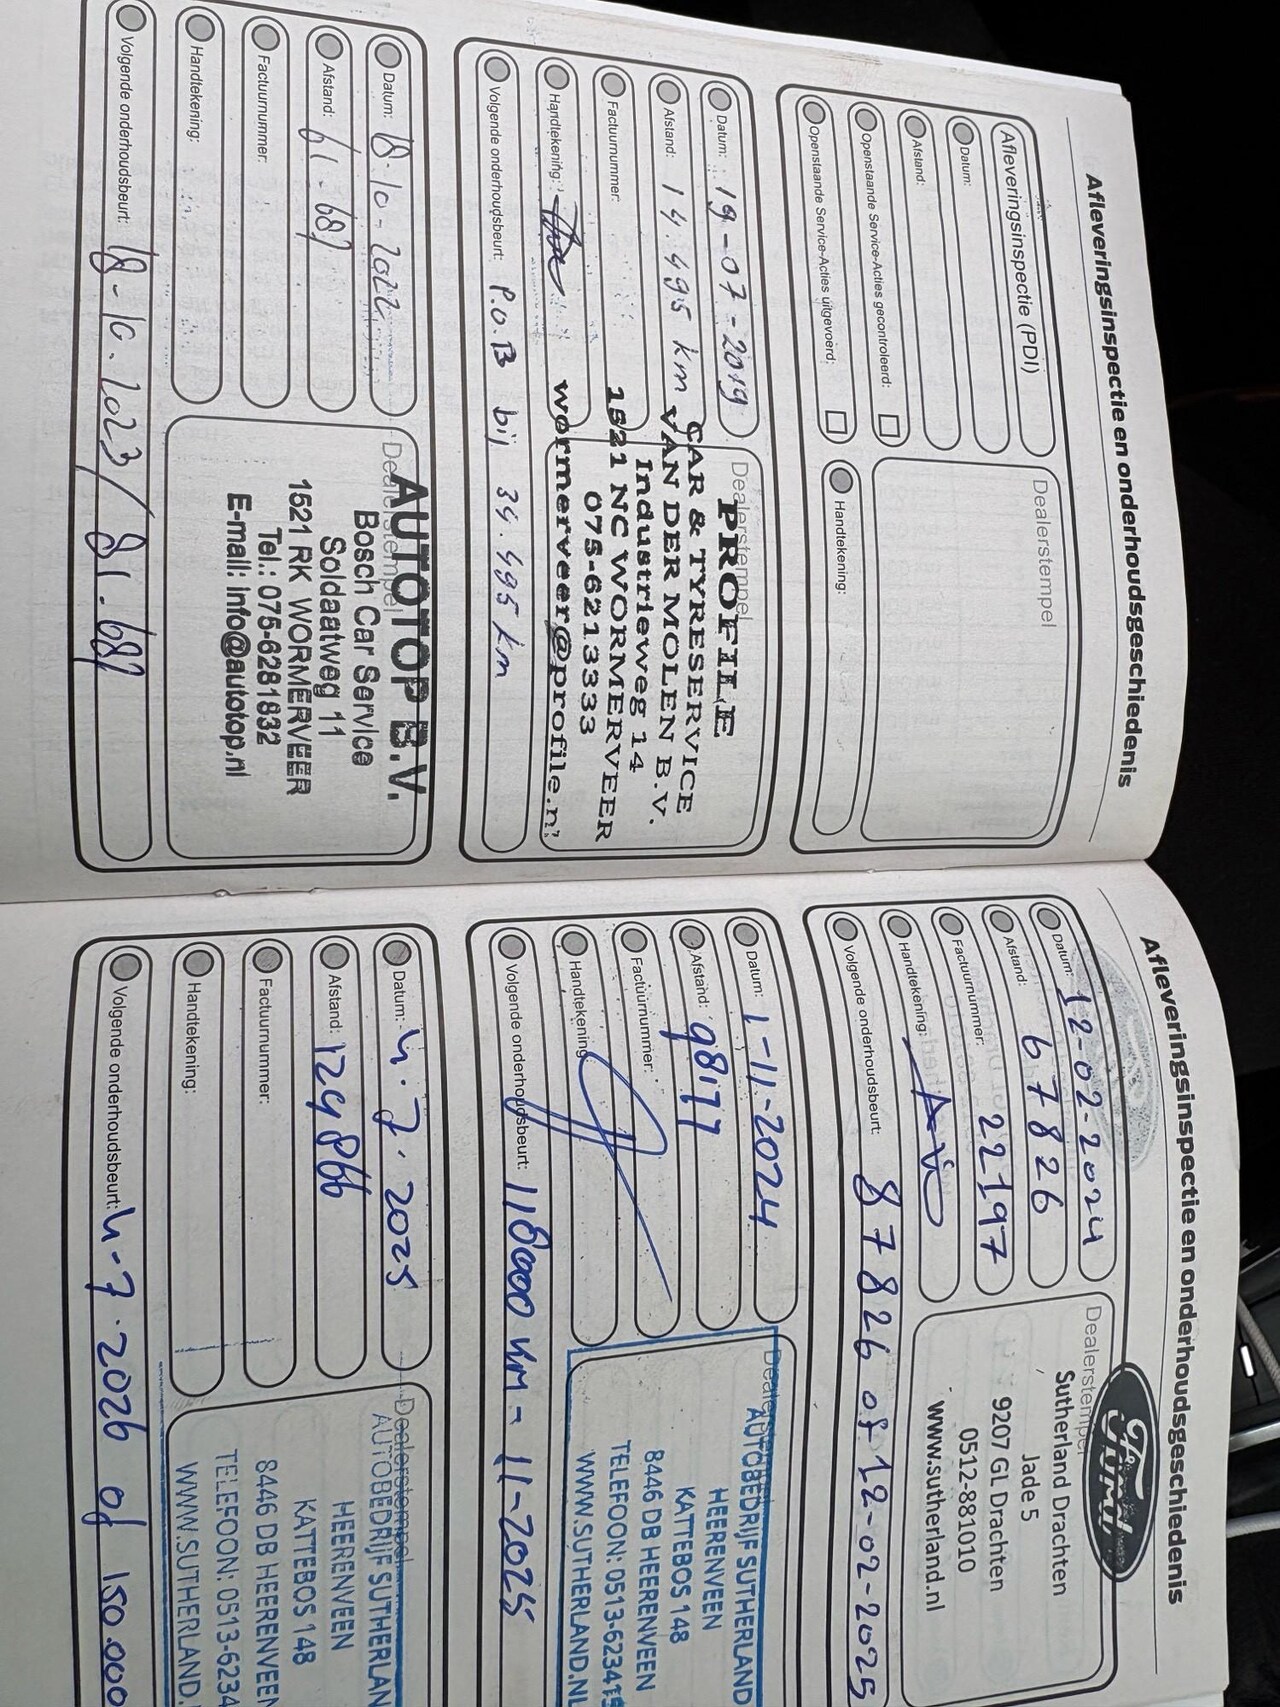 Afleveringsinspectie en onderhoudsgeschiedenis
Afleveringsinspectie (PDI)
Datum:
Afstand:
Openstaande Service-Acties gecontroleerd:
Openstaande Service-Acties uitgevoerd:
Dealerstempel
Handtekening:
Datum: 19-07-2019
Afstand: 14.495 km
Factuurnummer:
Handtekening:
Volgende onderhoudsbeurt: P.O.B bij 34.495 km
Dealerstempel
PROFILE
CAR & TYRESERVICE
VAN DER MOLEN B.V.
Industrieweg 14
1521 NC WORMERVEER
075-6213333
wormerveer@profile.nl
Datum: 18-10-2022
Afstand: 61.687
Factuurnummer:
Handtekening:
Volgende onderhoudsbeurt: 18-10.2023 / 81.687
Dealerstempel
AUTOTOP B.V.
Bosch Car Service
Soldaatweg 11
1521 RK WORMERVEER
Tel.: 075-6281832
E-mail: info@autotop.nl
Afleveringsinspectie en onderhoudsgeschiedenis
Datum: 12-02-2024
Afstand: 67826
Factuurnummer: 22197
Handtekening:
Volgende onderhoudsbeurt: 87826 of 12-02-2025
Dealerstempel
Ford
Sutherland Drachten
Jade 5
9207 GL Drachten
0512-881010
www.sutherland.nl
Datum: 1-11-2024
Afstand: 98177
Factuurnummer:
Handtekening:
Volgende onderhoudsbeurt: 118000 KM - 11-2025
Dealerstempel
AUTOBEDRIJF SUTHERLAND
HEERENVEEN
KATTEBOS 148
8446 DB HEERENVEEN
TELEFOON: 0513-62341
WWW.SUTHERLAND.NL
Datum: 4.7.2025
Afstand: 129866
Factuurnummer:
Handtekening:
Volgende onderhoudsbeurt: 4-7.2026 of 150.000
Dealerstempel
AUTOBEDRIJF SUTHERLAN
HEERENVEEN
KATTEBOS 148
8446 DB HEERENVEEN
TELEFOON: 0513-6234
WWW.SUTHERLAND.